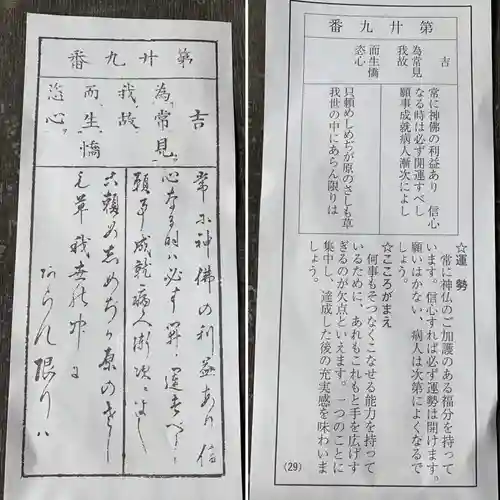 第廿九番
吉
為常見
我故
而生憍
恣心
常に神佛の利益あり 信
心なる時ハ必す開運すべし
願事成就病人漸次によし
只頼めしめぢが原のさし
も草 我世の中に
あらん限りハ
第廿九番
吉
為常見
我故
而生憍
恣心
常に神佛の利益あり 信心
なる時は必ず開運すべし
願事成就病人漸次によし
只頼めしめぢが原のさしも草
我世の中にあらん限りは
☆運 勢
常に神仏のご加護のある福分を持って
います。信心すれば必ず運勢は開けます。
願いはかない、病人は次第によくなるで
しょう。
☆こころがまえ
何事もそつなくこなせる能力を持って
いるために、あれもこれもと手を広げす
ぎるのが欠点といえます。一つのことに
集中し、達成した後の充実感を味わいま
しょう。
(29)